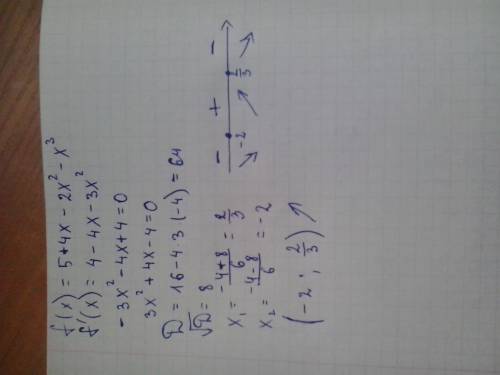 f(x) = 5+4x - 2x² - x³
f'(x) = 4 - 4x - 3x²
-3x² - 4x + 4 = 0
3x² + 4x - 4 = 0
D = 16 - 4·3(-4) = 64
√D = 8
x₁ = (-4+8)/6 = 2/3
x₂ = (-4-8)/6 = -2
(-2 ; 2/3) ↗
- + -
-2 2/3
↘ ↗ ↘